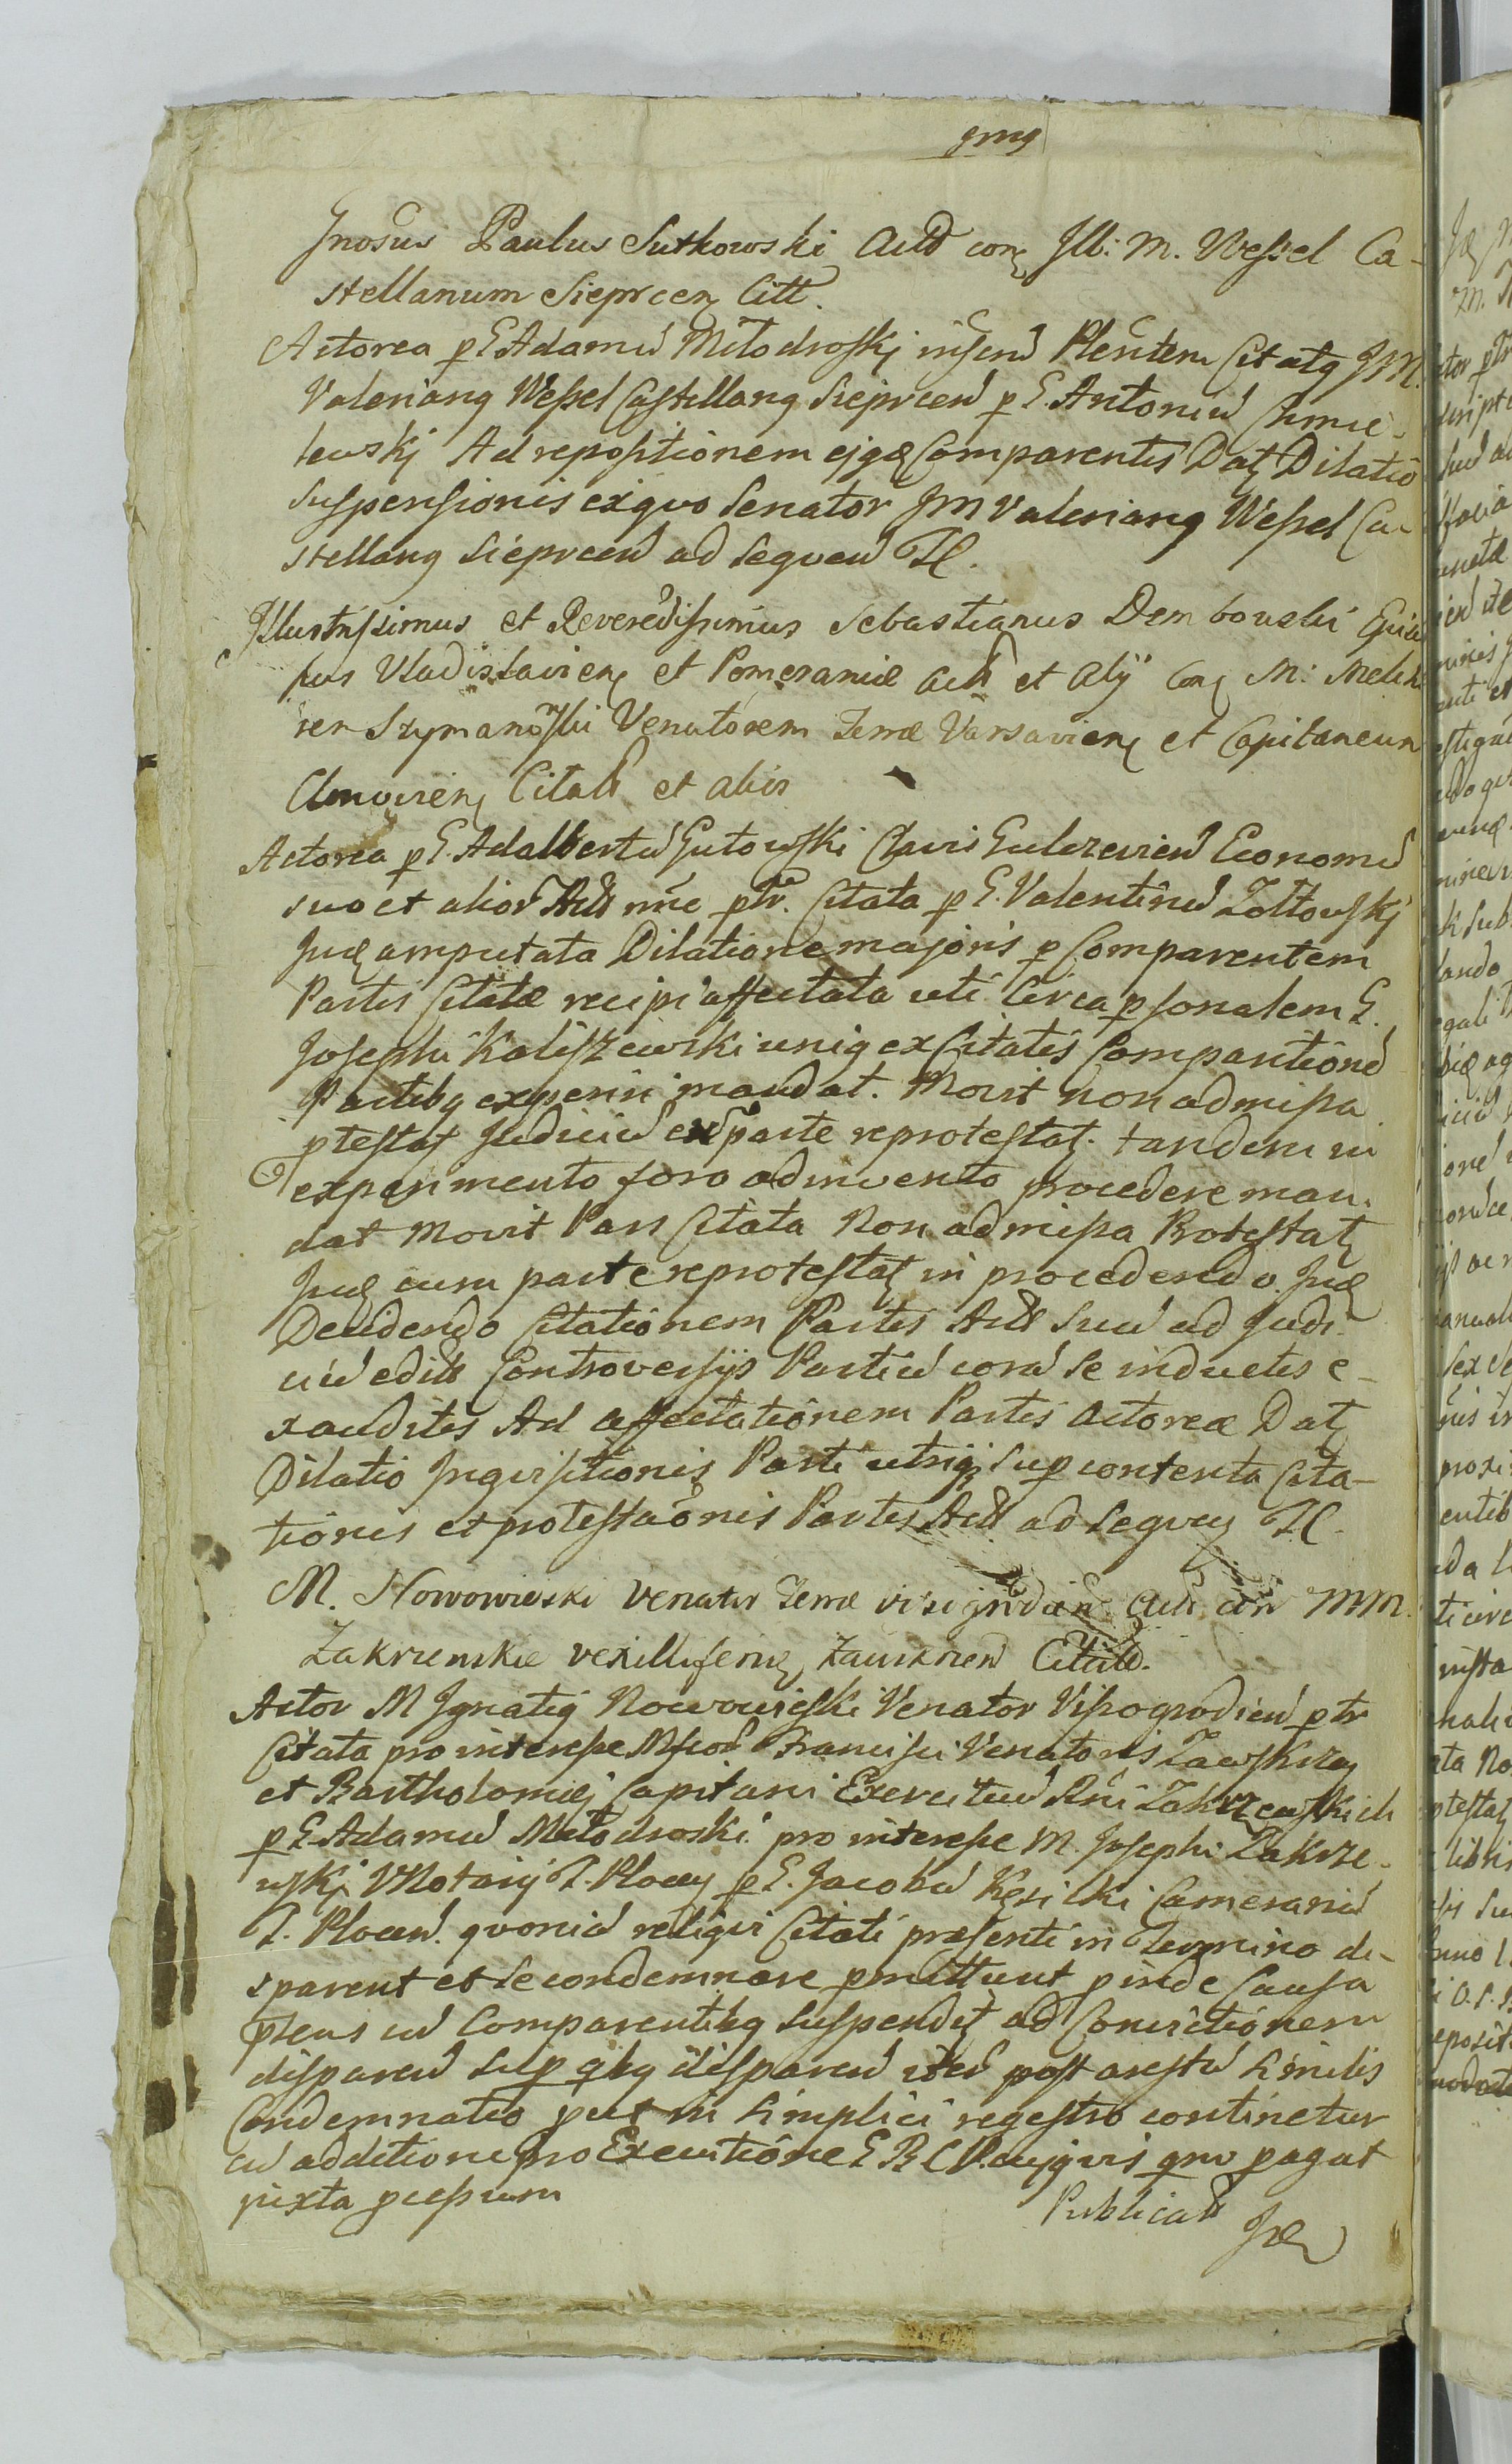 gmg
Gnosus Paulus Sutkowski Actt con Ill: M. Wessel Ca-
stellanum Sieprcen Citt.
Actorea p G Adamu Młodroski infrm Plentem Citatg JM.
Valeriang Wessel Castellang Sieprcen p G. Antoniu Chmie-
lewskj Ad repositionem ejgd Comparentis Datz Dilatio
suspensionis exquo Senator JM Valeriang Wessel Ca-
stellang Sieprcen ad sequen Tt.
Illustrissimus et Reveredissimus Sebastianus Dembowski Episco
pus Vladislavien et Pomeraniæ Actt et Alij Con M: Melch
rem Szymanowski Venatorem Terræ Varsavien et Capitaneum
Citatt et alios
Actorea p G. Adalbertu Gutowski Clavis Economu
suo et alior Actt nne ptr. Citata p G. Valentinu Zołtowskj
Jud amputata Dilatione majoris p Comparentem
Partis Citatæ recipi affectata uti Circa psonalem G.
Josephi Kaliszewski unig ex Citatis Comparitione
Partibg experiri mandat. Movit non admissa
ptestatz Judiciu cu parte reprotestatz. tandem in
experimento foro adinvento procedere man-
dat Movit Pars Citata Non admissa Protestatz
Jud cum parte reprotestatz in procedendo. Jud
Decidendo Citationem Partis Actt suu ad Judi-
ciu editt Controversijs Partiu coram se inductis e-
xauditis Ad affectationem Partis Actoreæ Datz
Dilatio Inquisitionis Parti utriqz sup contenta Cita-
tionis et protestaonis Partis Actt ad sequen Tt.
M. Nowowieski Venator Terræ Actt con MM.
Zakrzewskie vexilliferū Zawskrzen Citatt.
Actor M Ignatig Nowowieski Venator Vissogrodien ptr
Citata pro interesse Mfcor Francisci Venatoris Zawskrzen
et Bartholomæj Capitani Exercituu Rni Zakrzewskich
p G. Adamu Młodroski pro interesse M. Josephi Zakrze-
wskj VNotarij T. Plocen p G. Jacobu Kęsicki Camerariu
T. Plocen. quoniu reliqui Citati præsenti in Termino di-
sparent et se condemnare pmittunt pinde Causa
pteus cu Comparentibg suspenditz ad Convictionem
disparen sup qbg disparen iteu post arestu similis
Condemnatio put in simplici regestro continetur
cu additione pro Executione G B C P. cujqvis qnu pagat
juxta pcessum
Publicatt Jud